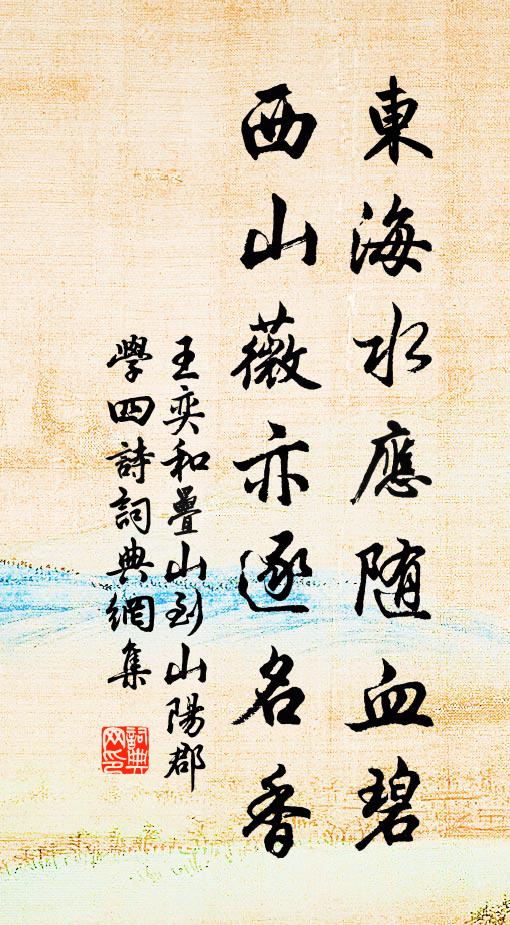 東海水應随血碧
西山薇亦逐名香
王奕和疊山到山陽郡
學四詩詞典網集
詞典網印